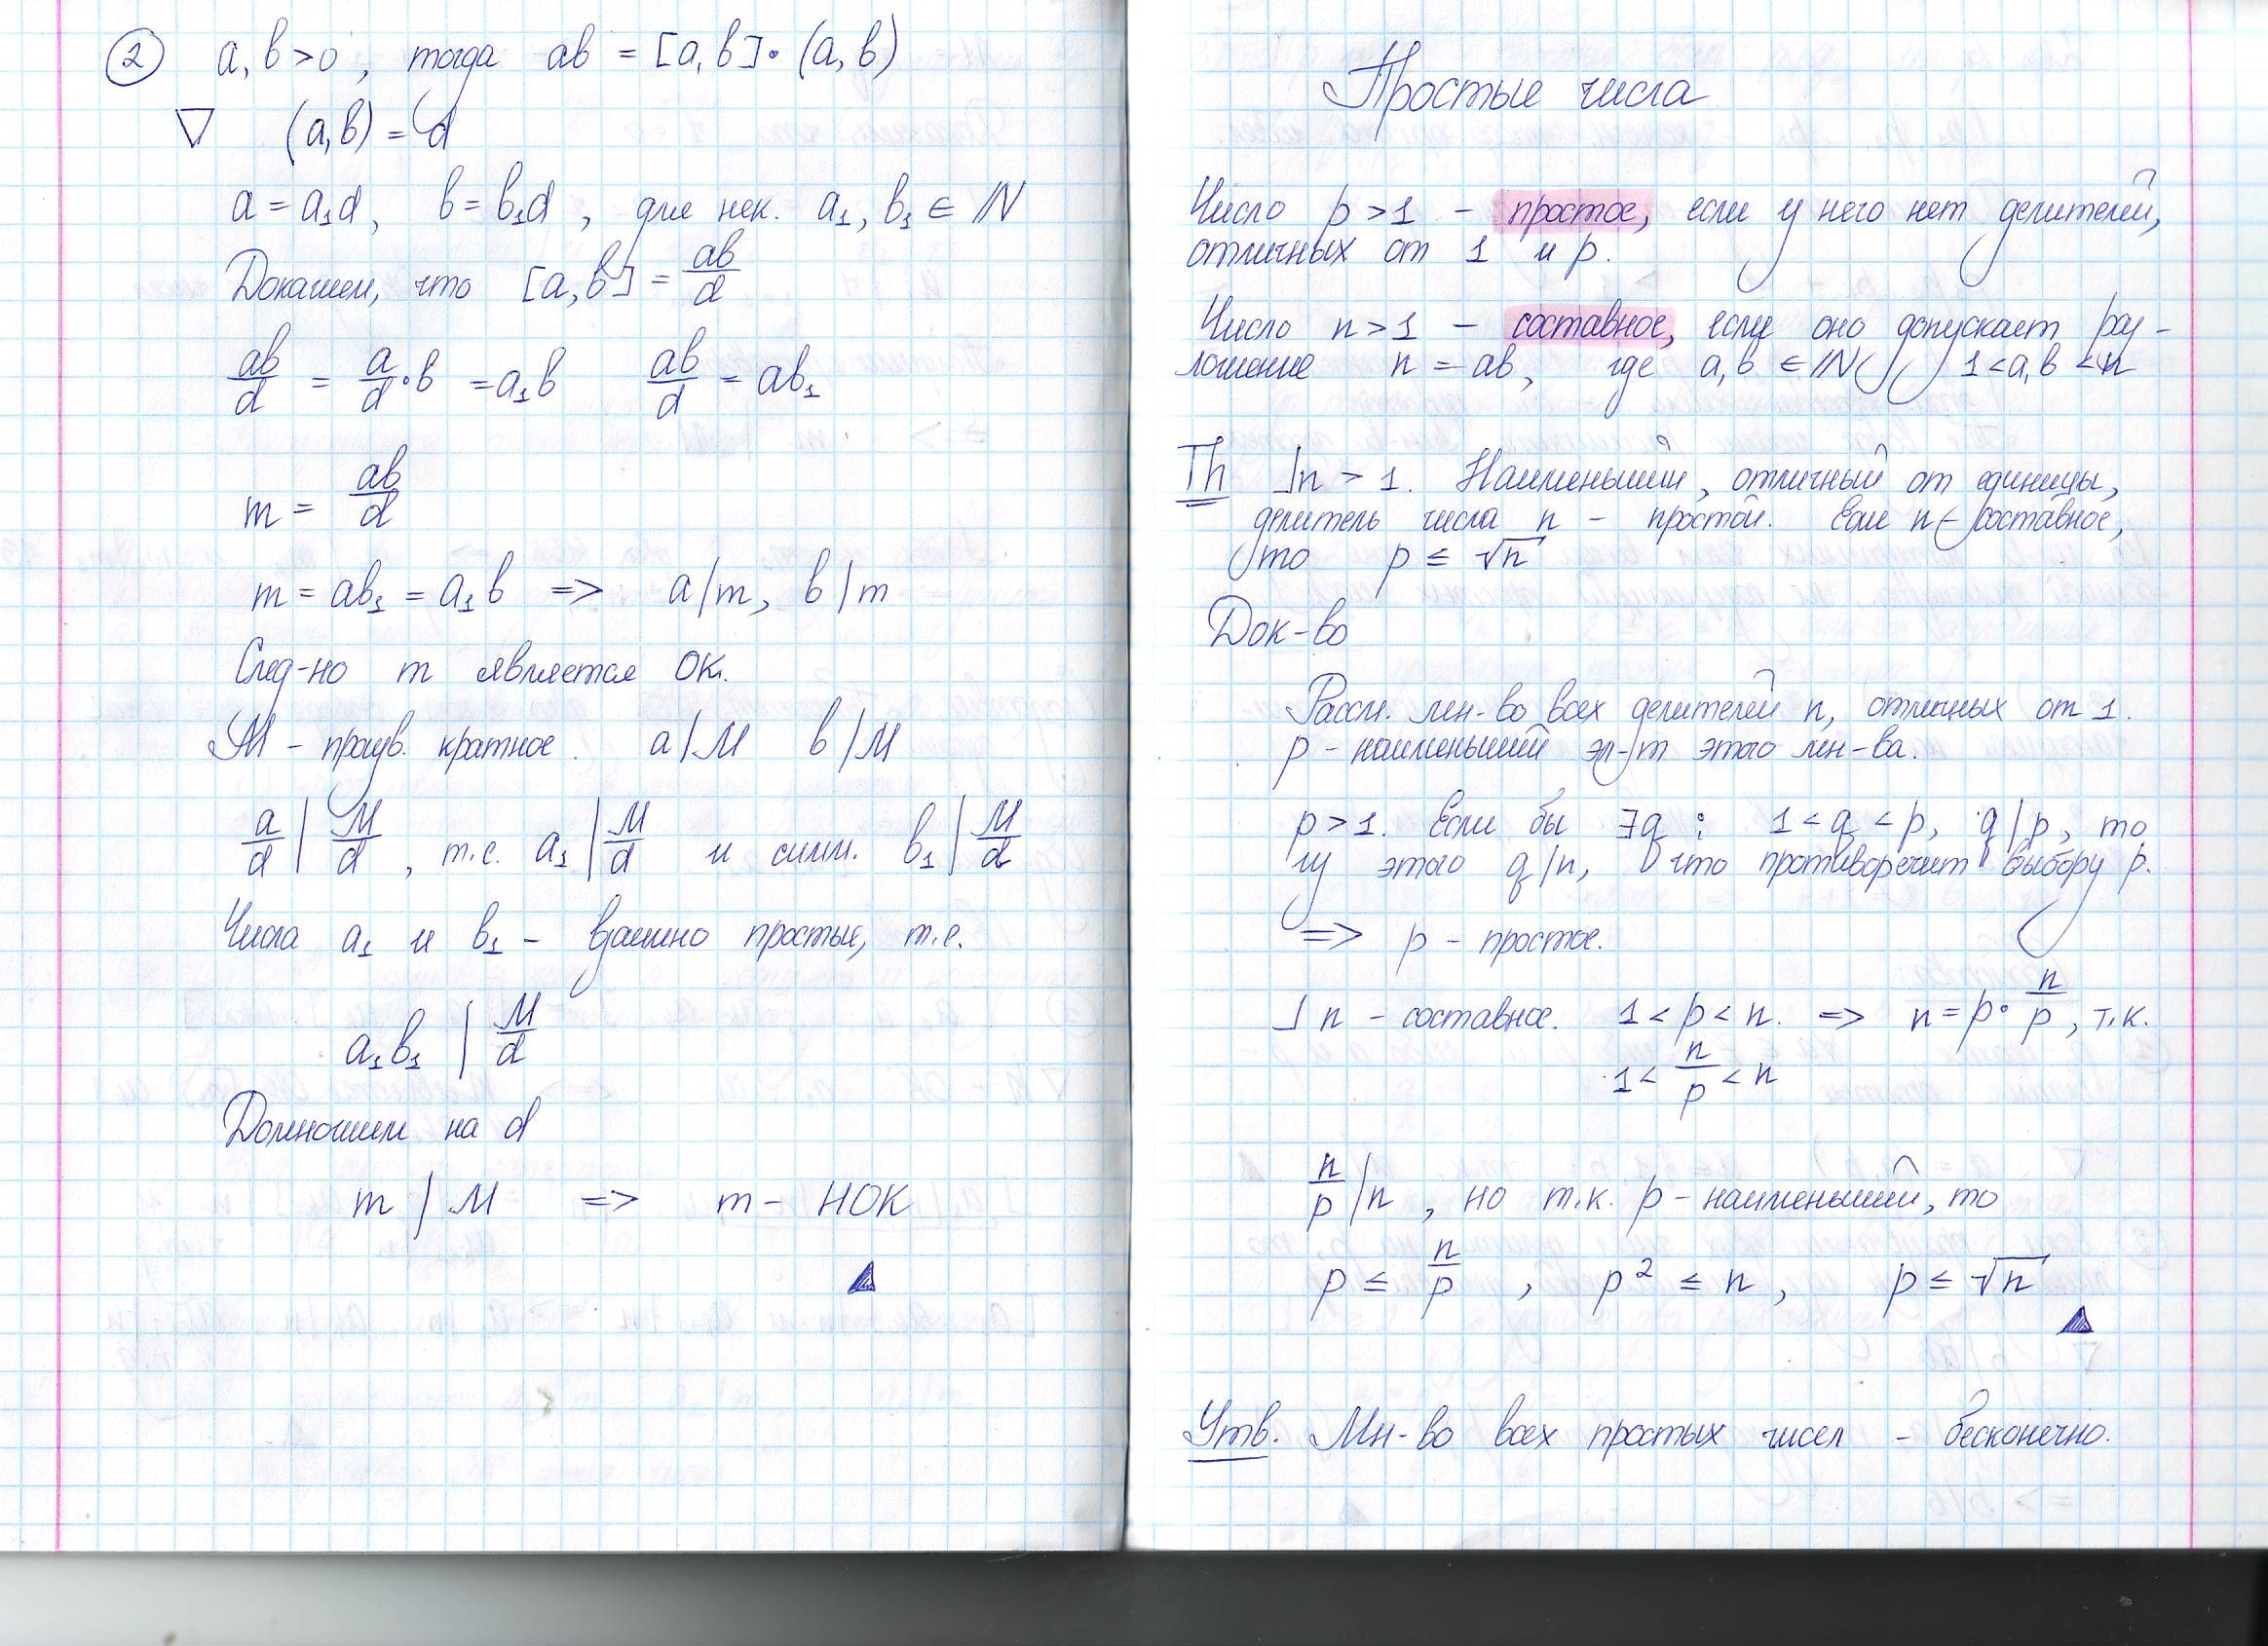 ② a, b > 0, тогда ab = [a, b]·(a, b)
▽ (a, b) = d
a = a₁d, b = b₁d, для нек. a₁, b₁ ∈ ℕ
Докажем, что [a, b] = ab/d
ab/d = a/d · b = a₁b ab/d = ab₁
m = ab/d
m = ab₁ = a₁b => a|m, b|m
След-но m является ОК.
M - произв. кратное. a|M b|M
a/d | M/d, т.е. a₁ | M/d и симм. b₁ | M/d
Числа a₁ и b₁ - взаимно простые, т.е.
a₁b₁ | M/d
Домножим на d
m | M => m - НОК
▲
Простые числа
Число p > 1 - простое, если у него нет делителей,
отличных от 1 и p.
Число n > 1 - составное, если оно допускает раз-
ложение n = ab, где a, b ∈ ℕ 1 < a, b < n
Th ⅃n > 1. Наименьший, отличный от единицы,
делитель числа n - простой. Если n - составное,
то p ≤ √n
Док-во
Рассм. мн-во всех делителей n, отличных от 1.
p - наименьший эл-т этого мн-ва.
p > 1. Если бы ∃q : 1 < q < p, q|p, то
из этого q|n, что противоречит выбору p.
=> p - простое.
⅃ n - составное. 1 < p < n. => n = p · n/p, т.к.
1 < n/p < n
n/p | n, но т.к. p - наименьший, то
p ≤ n/p, p² ≤ n, p ≤ √n
▲
Утв. Мн-во всех простых чисел - бесконечно.